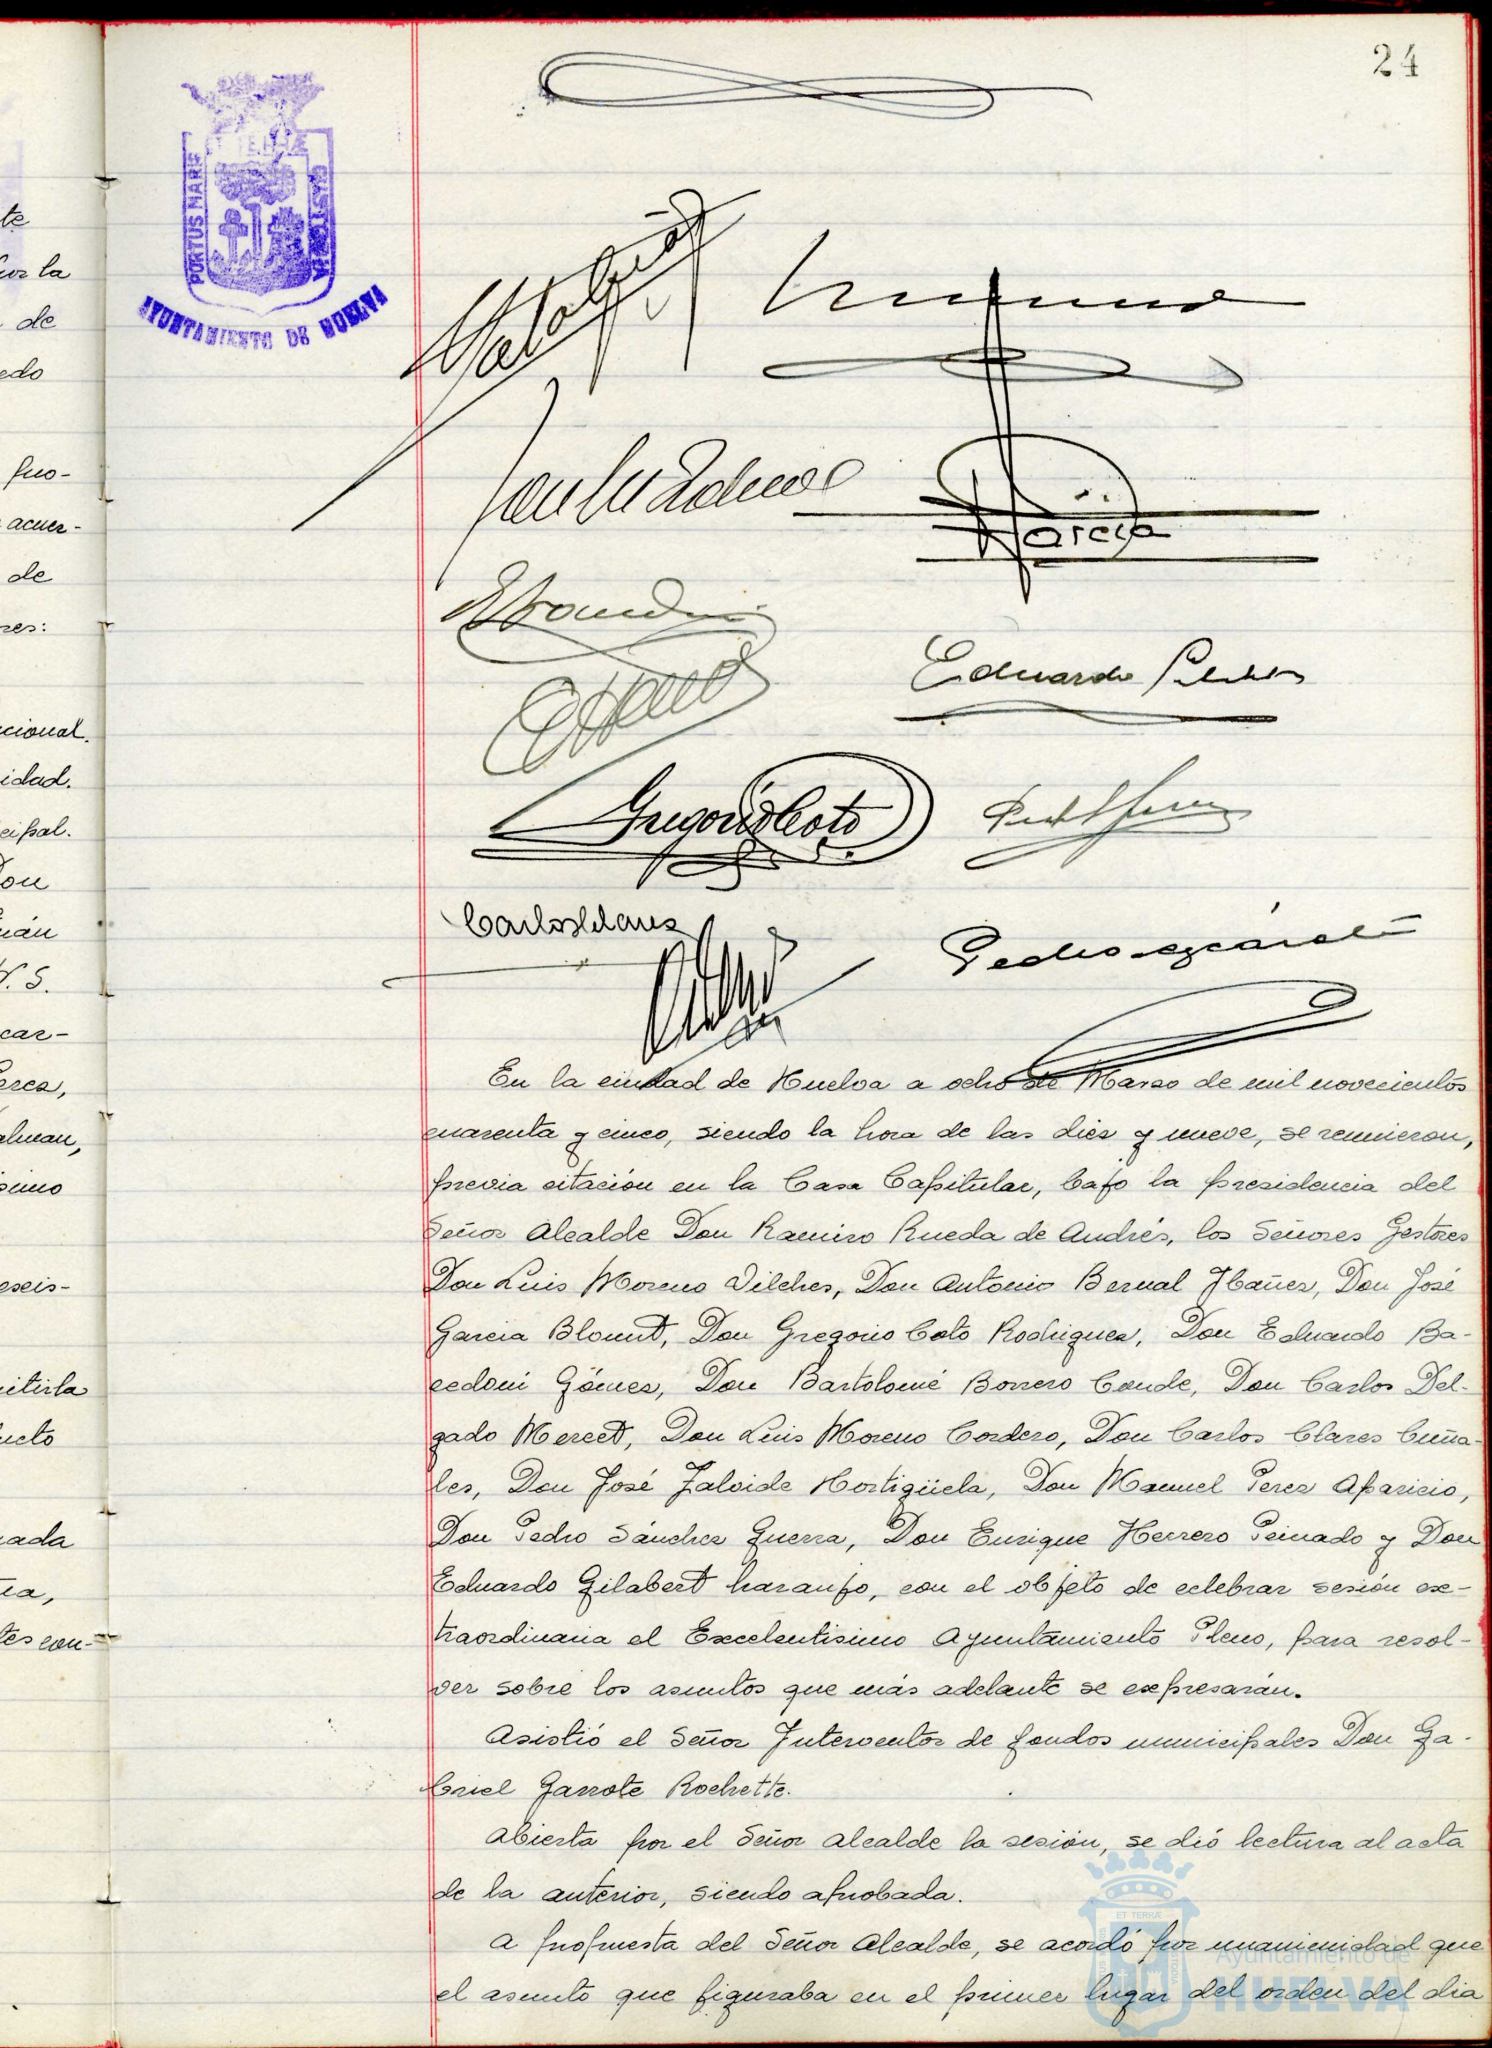 24
ET TERRÆ
PORTUS MARIS
CUSTODIA
AYUNTAMIENTO DE HUELVA
García
Eduardo
Gregorio Coto
Carlos Clares
Pedro
te
por la
de
edo
pro-
acuer-
de
res:
cional.
idad.
cipal.
Don
mán
V. S.
car-
Perez,
simo
eseis-
mitirla
ucto
rada
cia,
tes con-
En la ciudad de Huelva a ocho de Marzo de mil novecientos
cuarenta y cinco, siendo la hora de las diez y nueve, se reunieron,
previa citación en la Casa Capitular, bajo la presidencia del
Señor Alcalde Don Ramiro Rueda de Andrés, los Señores Gestores
Don Luis Moreno Vilches, Don Antonio Bernal Ibañez, Don José
Garcia Blount, Don Gregorio Coto Rodriguez, Don Eduardo Ba-
cedoni Gómez, Don Bartolomé Borrero Conde, Don Carlos Del-
gado Mercet, Don Luis Moreno Cordero, Don Carlos Clares Cuña-
les, Don José Zalvide Hortigüela, Don Manuel Perez Aparicio,
Don Pedro Sánchez Guerra, Don Enrique Herrero Peinado y Don
Eduardo Gilabert Naranjo, con el objeto de celebrar sesión ex-
traordinaria el Excelentisimo Ayuntamiento Pleno, para resol-
ver sobre los asuntos que más adelante se expresarán.
Asistió el Señor Interventor de fondos municipales Don Ga-
briel Garrote Rochette.
Abierta por el Señor Alcalde la sesión, se dió lectura al acta
de la anterior, siendo aprobada.
A propuesta del Señor Alcalde, se acordó por unanimidad que
el asunto que figuraba en el primer lugar del orden del dia
ET TERRÆ
Ayuntamiento de
HUELVA